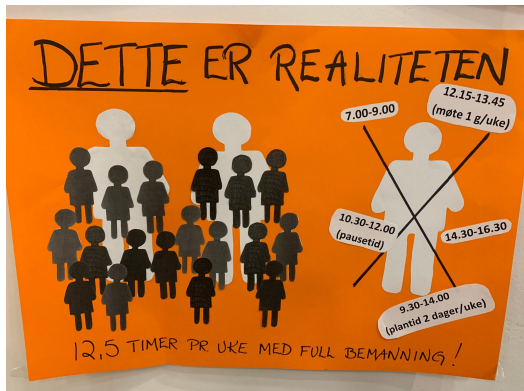 DETTE ER REALITETEN
7.00-9.00
12.15-13.45
(møte 1 g/uke)
10.30-12.00
(pausetid)
14.30-16.30
9.30-14.00
(plantid 2 dager/uke)
12,5 TIMER PR. UKE MED FULL BEMANNING!